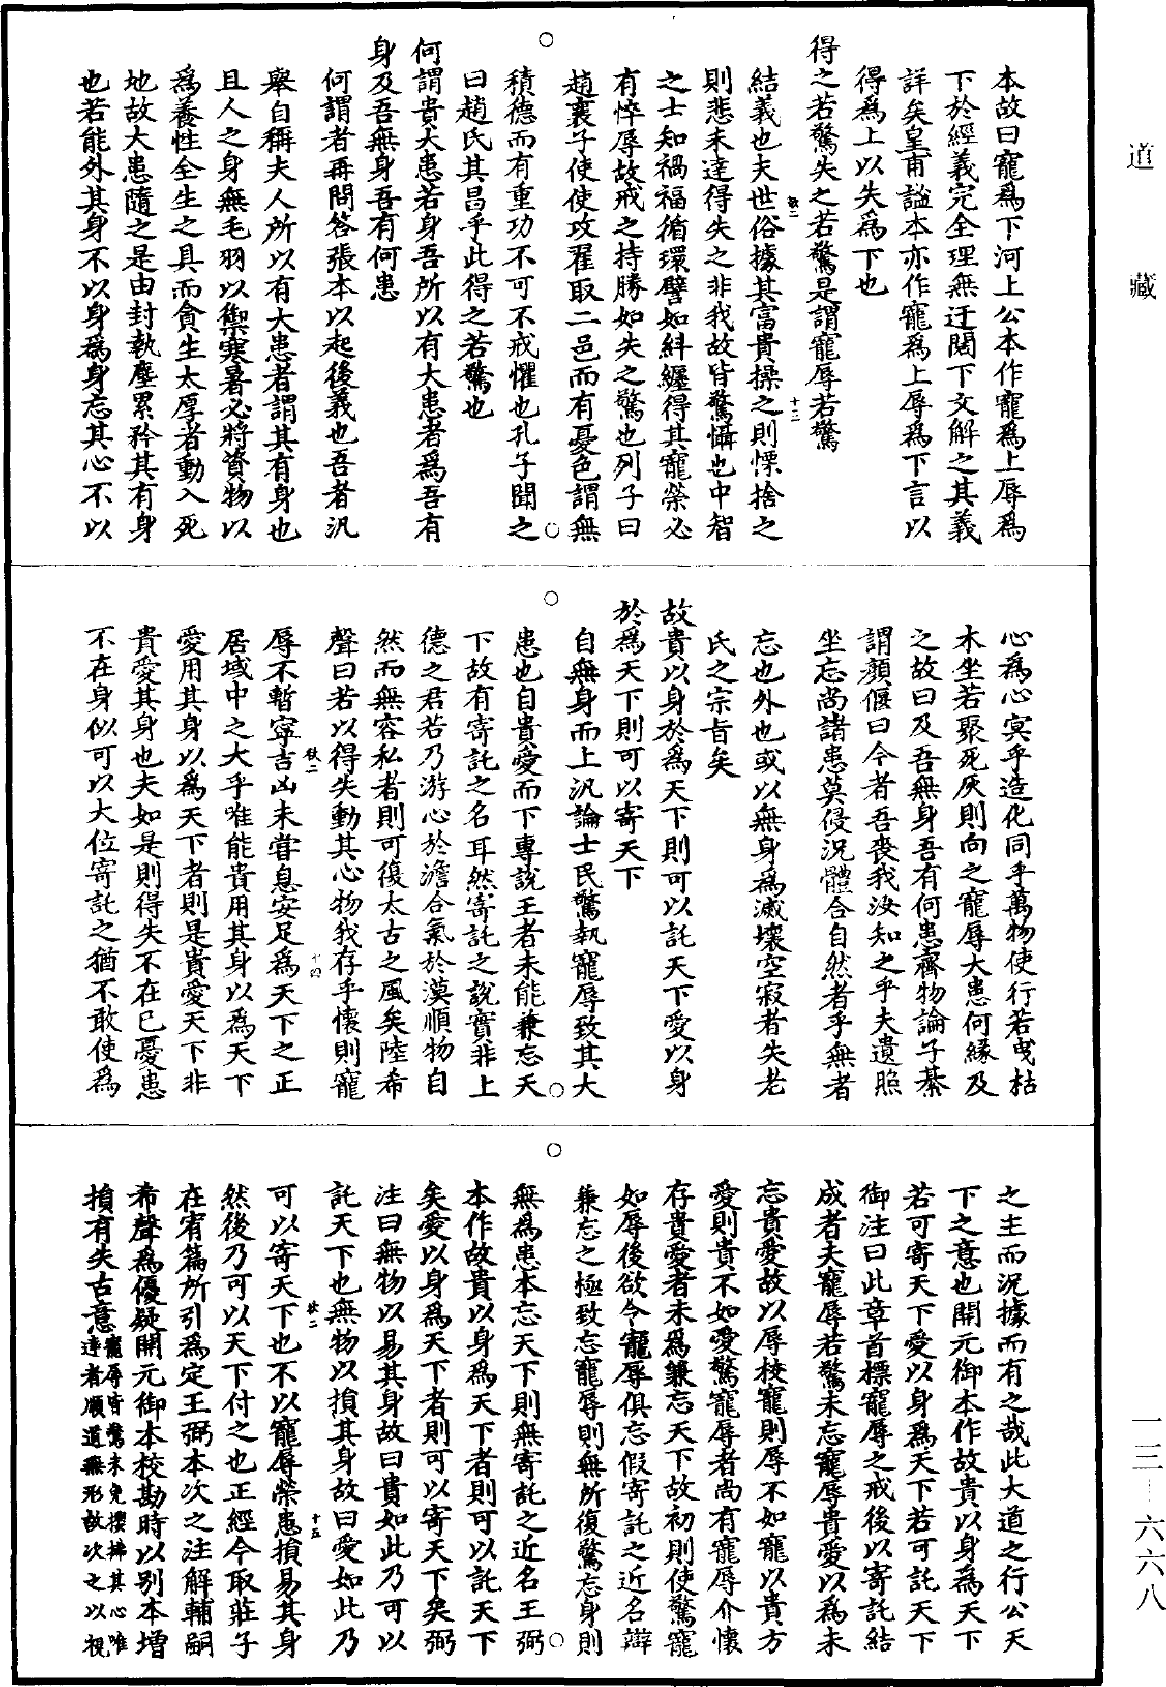 道藏
本故曰寵爲下河上公本作寵爲上辱爲
下於經義完全理無迂闊下文解之其義
詳矣皇甫謐本亦作寵爲上辱爲下言以
得爲上以失爲下也
得之若驚失之若驚是謂寵辱若驚
結義也夫世俗據其富貴操之則慄捨之
則悲未達得失之非我故皆驚懾也中智
之士知禍福循環譬如糾纆得其寵榮必
有悴辱故戒之持勝如失之驚也列子曰
趙襄子使使攻翟取二邑而有憂色謂無
積德而有重功不可不戒懼也孔子聞之
曰趙氏其昌乎此得之若驚也
何謂貴大患若身吾所以有大患者爲吾有
身及吾無身吾有何患
何謂者再問答張本以起後義也吾者汎
舉自稱夫人所以有大患者謂其有身也
且人之身無毛羽以禦寒暑必將資物以
爲養性全生之具而貪生太厚者動入死
地故大患隨之是由封執塵累矜其有身
也若能外其身不以身爲身忘其心不以
心爲心冥乎造化同乎萬物使行若曳枯
木坐若聚死灰則向之寵辱大患何緣及
之故曰及吾無身吾有何患齊物論子綦
謂顏偃曰今者吾喪我汝知之乎夫遺照
坐忘尚諸患莫侵況體合自然者乎無者
忘也外也或以無身爲滅壞空寂者失老
氏之宗旨矣
故貴以身於爲天下則可以託天下愛以身
於爲天下則可以寄天下
自無身而上汎論士民驚執寵辱致其大
患也自貴愛而下專說王者未能兼忘天
下故有寄託之名耳然寄託之說實非上
德之君若乃游心於澹合氣於漠順物自
然而無容私者則可復太古之風矣陸希
聲曰若以得失動其心物我存乎懷則寵
辱不暫寧吉凶未嘗息安足爲天下之正
居域中之大乎唯能貴用其身以爲天下
愛用其身以爲天下者則是貴愛天下非
貴愛其身也夫如是則得失不在已憂患
不在身似可以大位寄託之猶不敢使爲
之主而況據而有之哉此大道之行公天
下之意也開元御本作故貴以身爲天下
若可寄天下愛以身爲天下若可託天下
御注曰此章首標寵辱之戒後以寄託結
成者夫寵辱若驚未忘寵辱貴愛以爲未
忘貴愛故以辱校寵則辱不如寵以貴方
愛則貴不如愛驚寵辱者尚有寵辱介懷
存貴愛者未爲兼忘天下故初則使驚寵
如辱後欲令寵辱俱忘假寄託之近名辯
兼忘之極致忘寵辱則無所復驚忘身則
無爲患本忘天下則無寄託之近名王弼
本作故貴以身爲天下者則可以託天下
矣愛以身爲天下者則可以寄天下矣弼
注曰無物以易其身故曰貴如此乃可以
託天下也無物以損其身故曰愛如此乃
可以寄天下也不以寵辱榮患損易其身
然後乃可以天下付之也正經今取莊子
在宥篇所引爲定王弼本次之注解輔嗣
希聲爲優疑開元御本校勘時以別本增
損有失古意寵辱皆驚未免攖拂其心唯
達者順道無形故次之以視
欲二
十三
欲二
十四
欲二
十五
一三－六六八